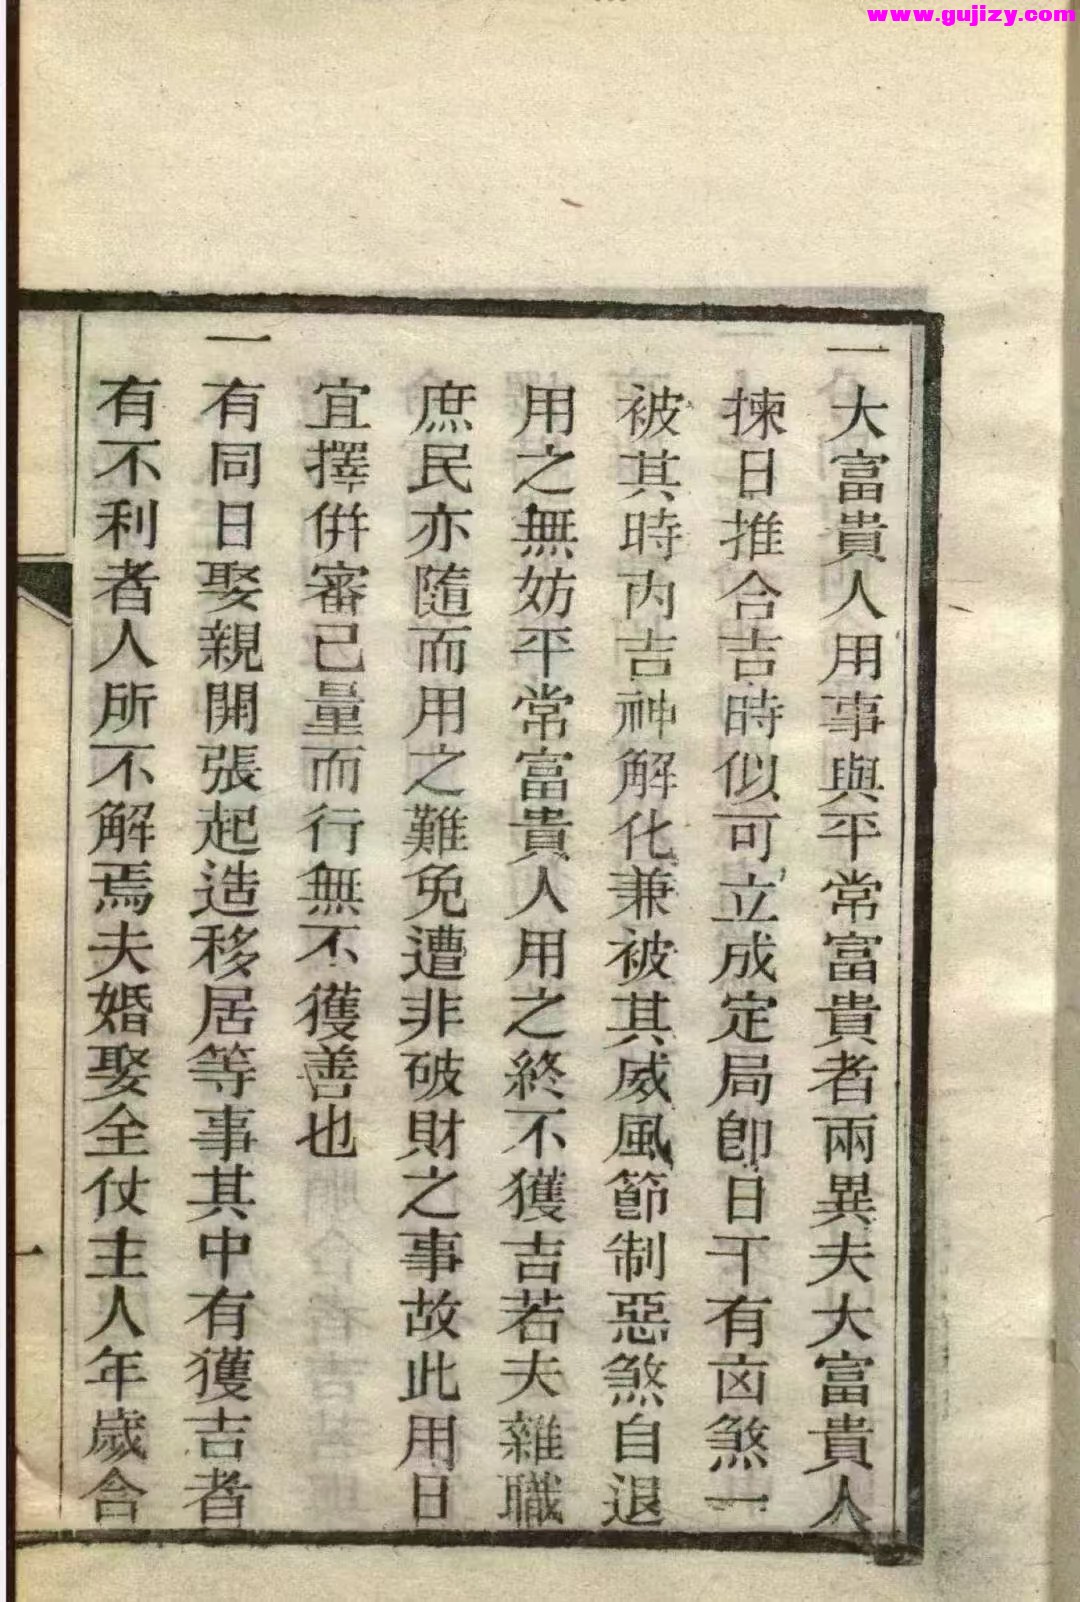 www.gujizy.com
一大富貴人用事與平常富貴者兩異夫大富貴人
揀日推合吉時似可立成定局卽日干有凶煞一
被其時內吉神解化兼被其威風節制惡煞自退
用之無妨平常富貴人用之終不獲吉若夫雜職
庶民亦隨而用之難免遭非破財之事故此用日
宜擇倂審己量而行無不獲善也
一有同日娶親開張起造移居等事其中有獲吉者
有不利者人所不解焉夫婚娶全仗主人年歲合
一